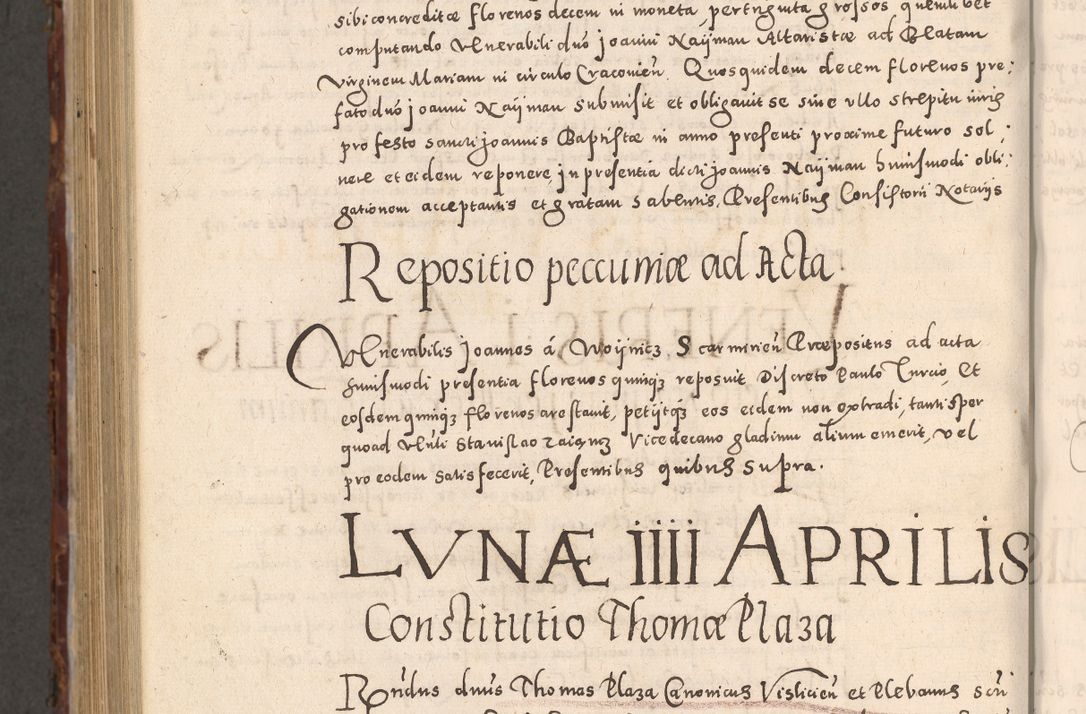 sibi concreditæ florenos decem in moneta, per triginta grossos quemlibet
computando Venerabili duo Joanni Naÿman Altaristæ ad Beatam
Virginem Mariam in circulo Cracovien̄. Quosquidem decem florenos pre:
fato duo Joanni Naÿman submisit et obligavit se sine ullo strepitu iuris
pro festo sancti Joannis Baptistæ in anno presenti proxime futuro sol:
vere et eidem reponere, in presentia dicti Joannis Naÿman huiusmodi obli:
gationem acceptantis et gratam habentis, Presentibus Consistorii Notarijs
Repositio peccuniæ ad Acta.
Venerabilis Joannes á Woÿnicz Scarmirien̄ Præpositus ad acta
huiusmodi presentia florenos quinqȝ reposuit Discreto Paulo Turcio, Et
eosdem quinqȝ florenos arestavit, petijtqȝ eos eidem non extradi, tantisper
quoad Vn̄li Stanislao Vicedecano gladium alium emerit, vel
pro eodem satisfecerit, Presentibus quibus supra.
LVNÆ iiii APRILIS
Constitutio Thomæ Plaza
Rn̄dus dnus Thomas Plaza Canonicus Vislicien̄ et Plebanus